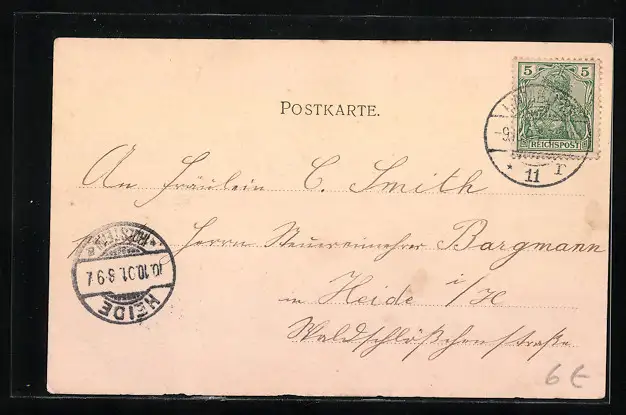 5 5
REICHSPOST
POSTKARTE.
11 r
An Fräulein C. Smith
Herrn Steuereinnehmer Bargmann
HOLSTEIN
10.10.01. 8-9 V.
HEIDE
in Heide i/H
Waldschlößchenstraße
6 €